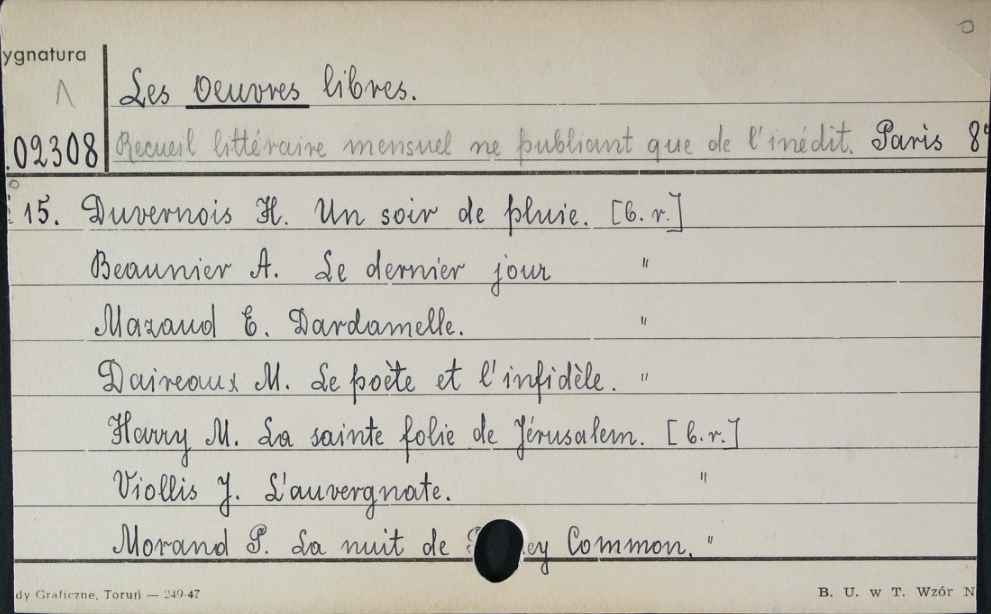 ygnatura
Λ
Les Oeuvres libres.
.02308
Recueil littéraire mensuel ne publiant que de l'inédit. Paris 8°
15. Duvernois H. Un soir de pluie. [b.r.]
Beaunier A. Le dernier jour "
Mazaud E. Dardamelle. "
Daireaux M. Le poète et l'infidèle. "
Harry M. La sainte folie de Jérusalem. [b.r.]
Viollis J. L'auvergnate. "
Morand P. La nuit de ey Common. "
dy Graficzne, Toruń — 249-47
B. U. w T. Wzór N